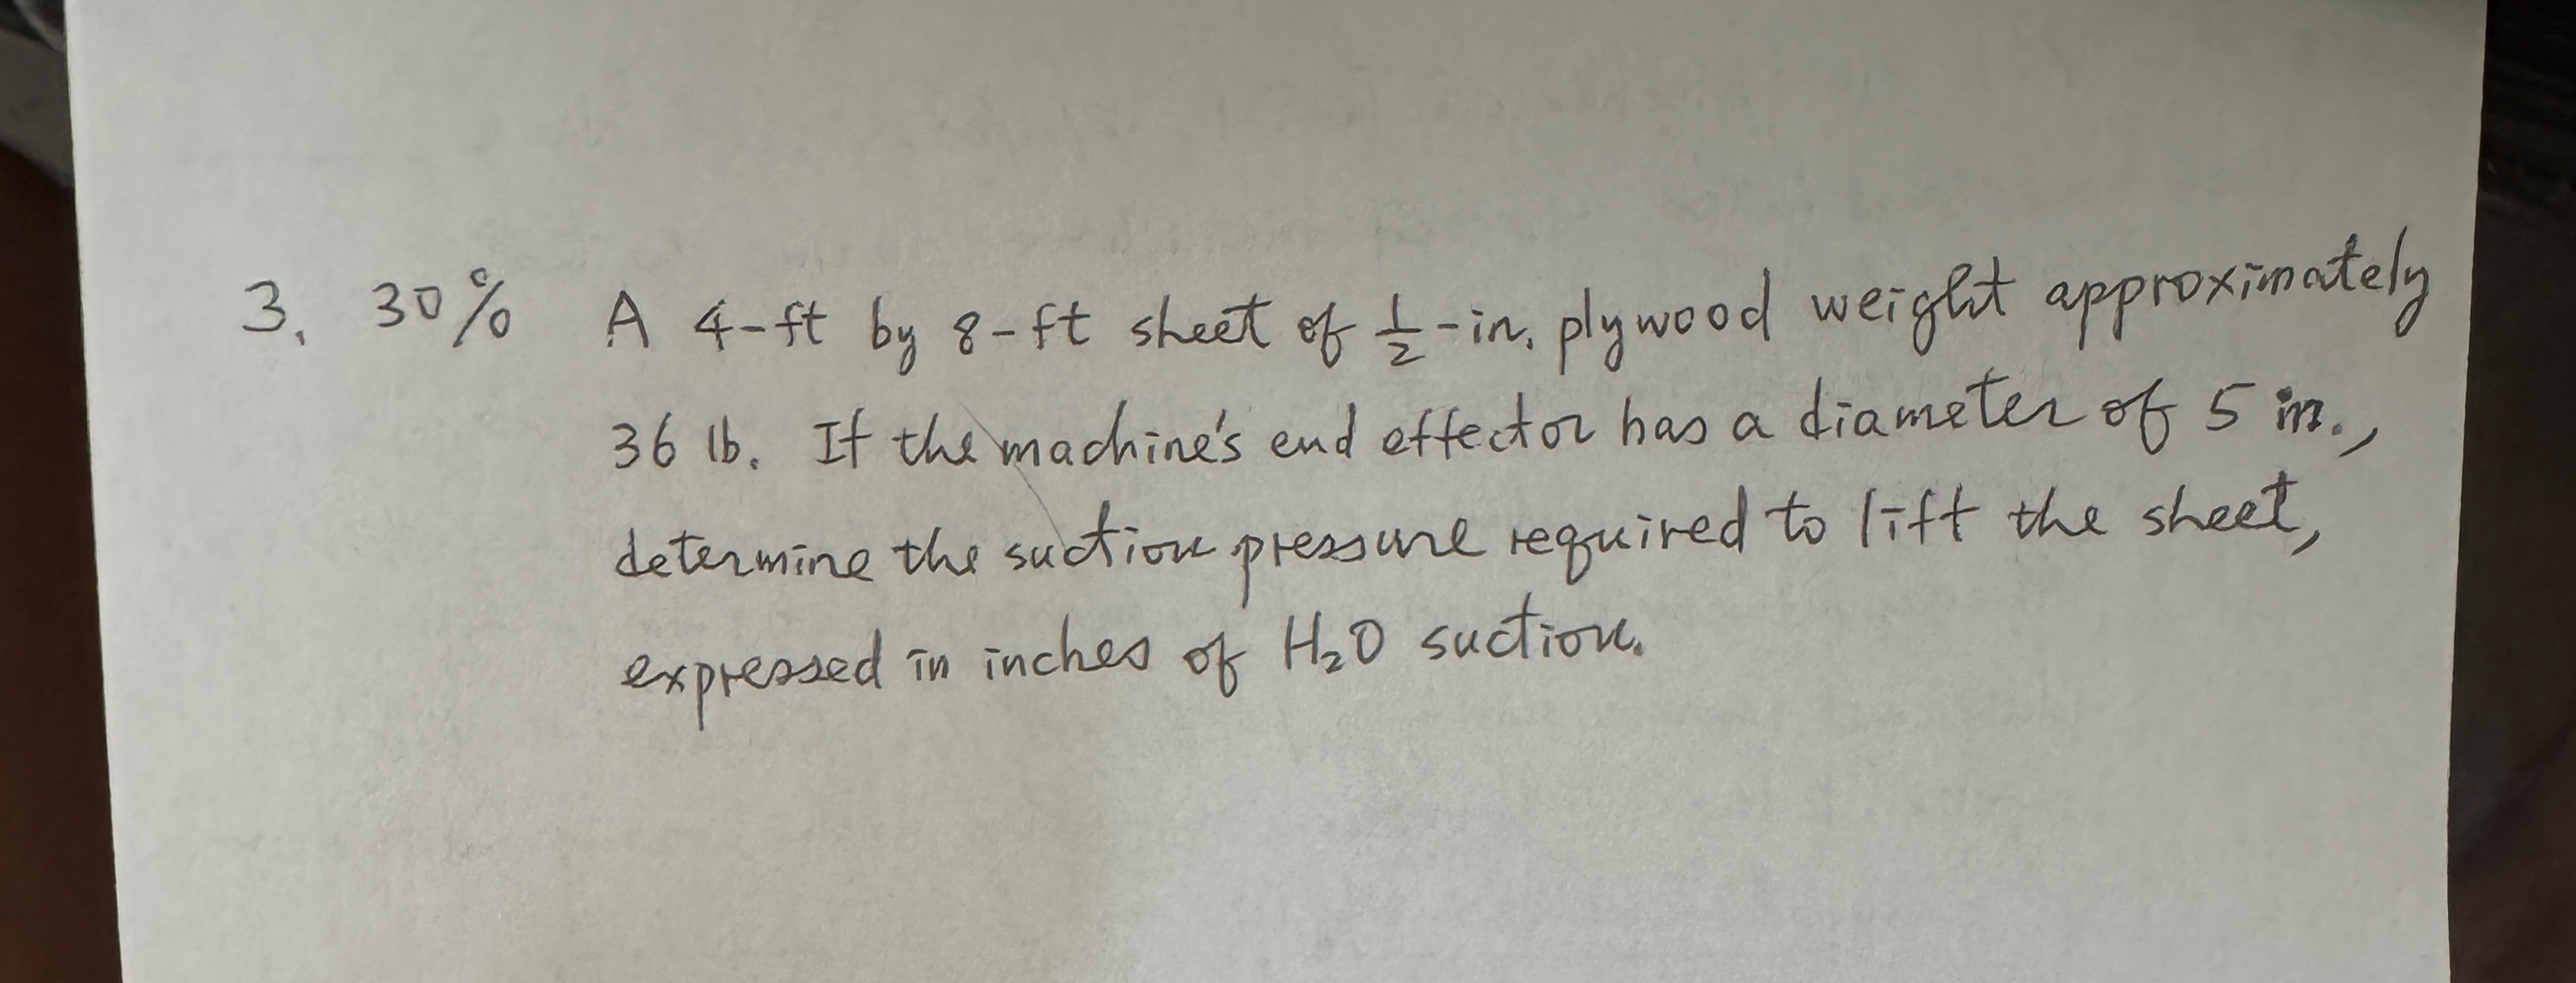 3. 30% A 4-ft by 8-ft sheet of 1/2-in. plywood weight approximately
36 lb. If the machine's end effector has a diameter of 5 in.,
determine the suction pressure required to lift the sheet,
expressed in inches of H₂O suction.